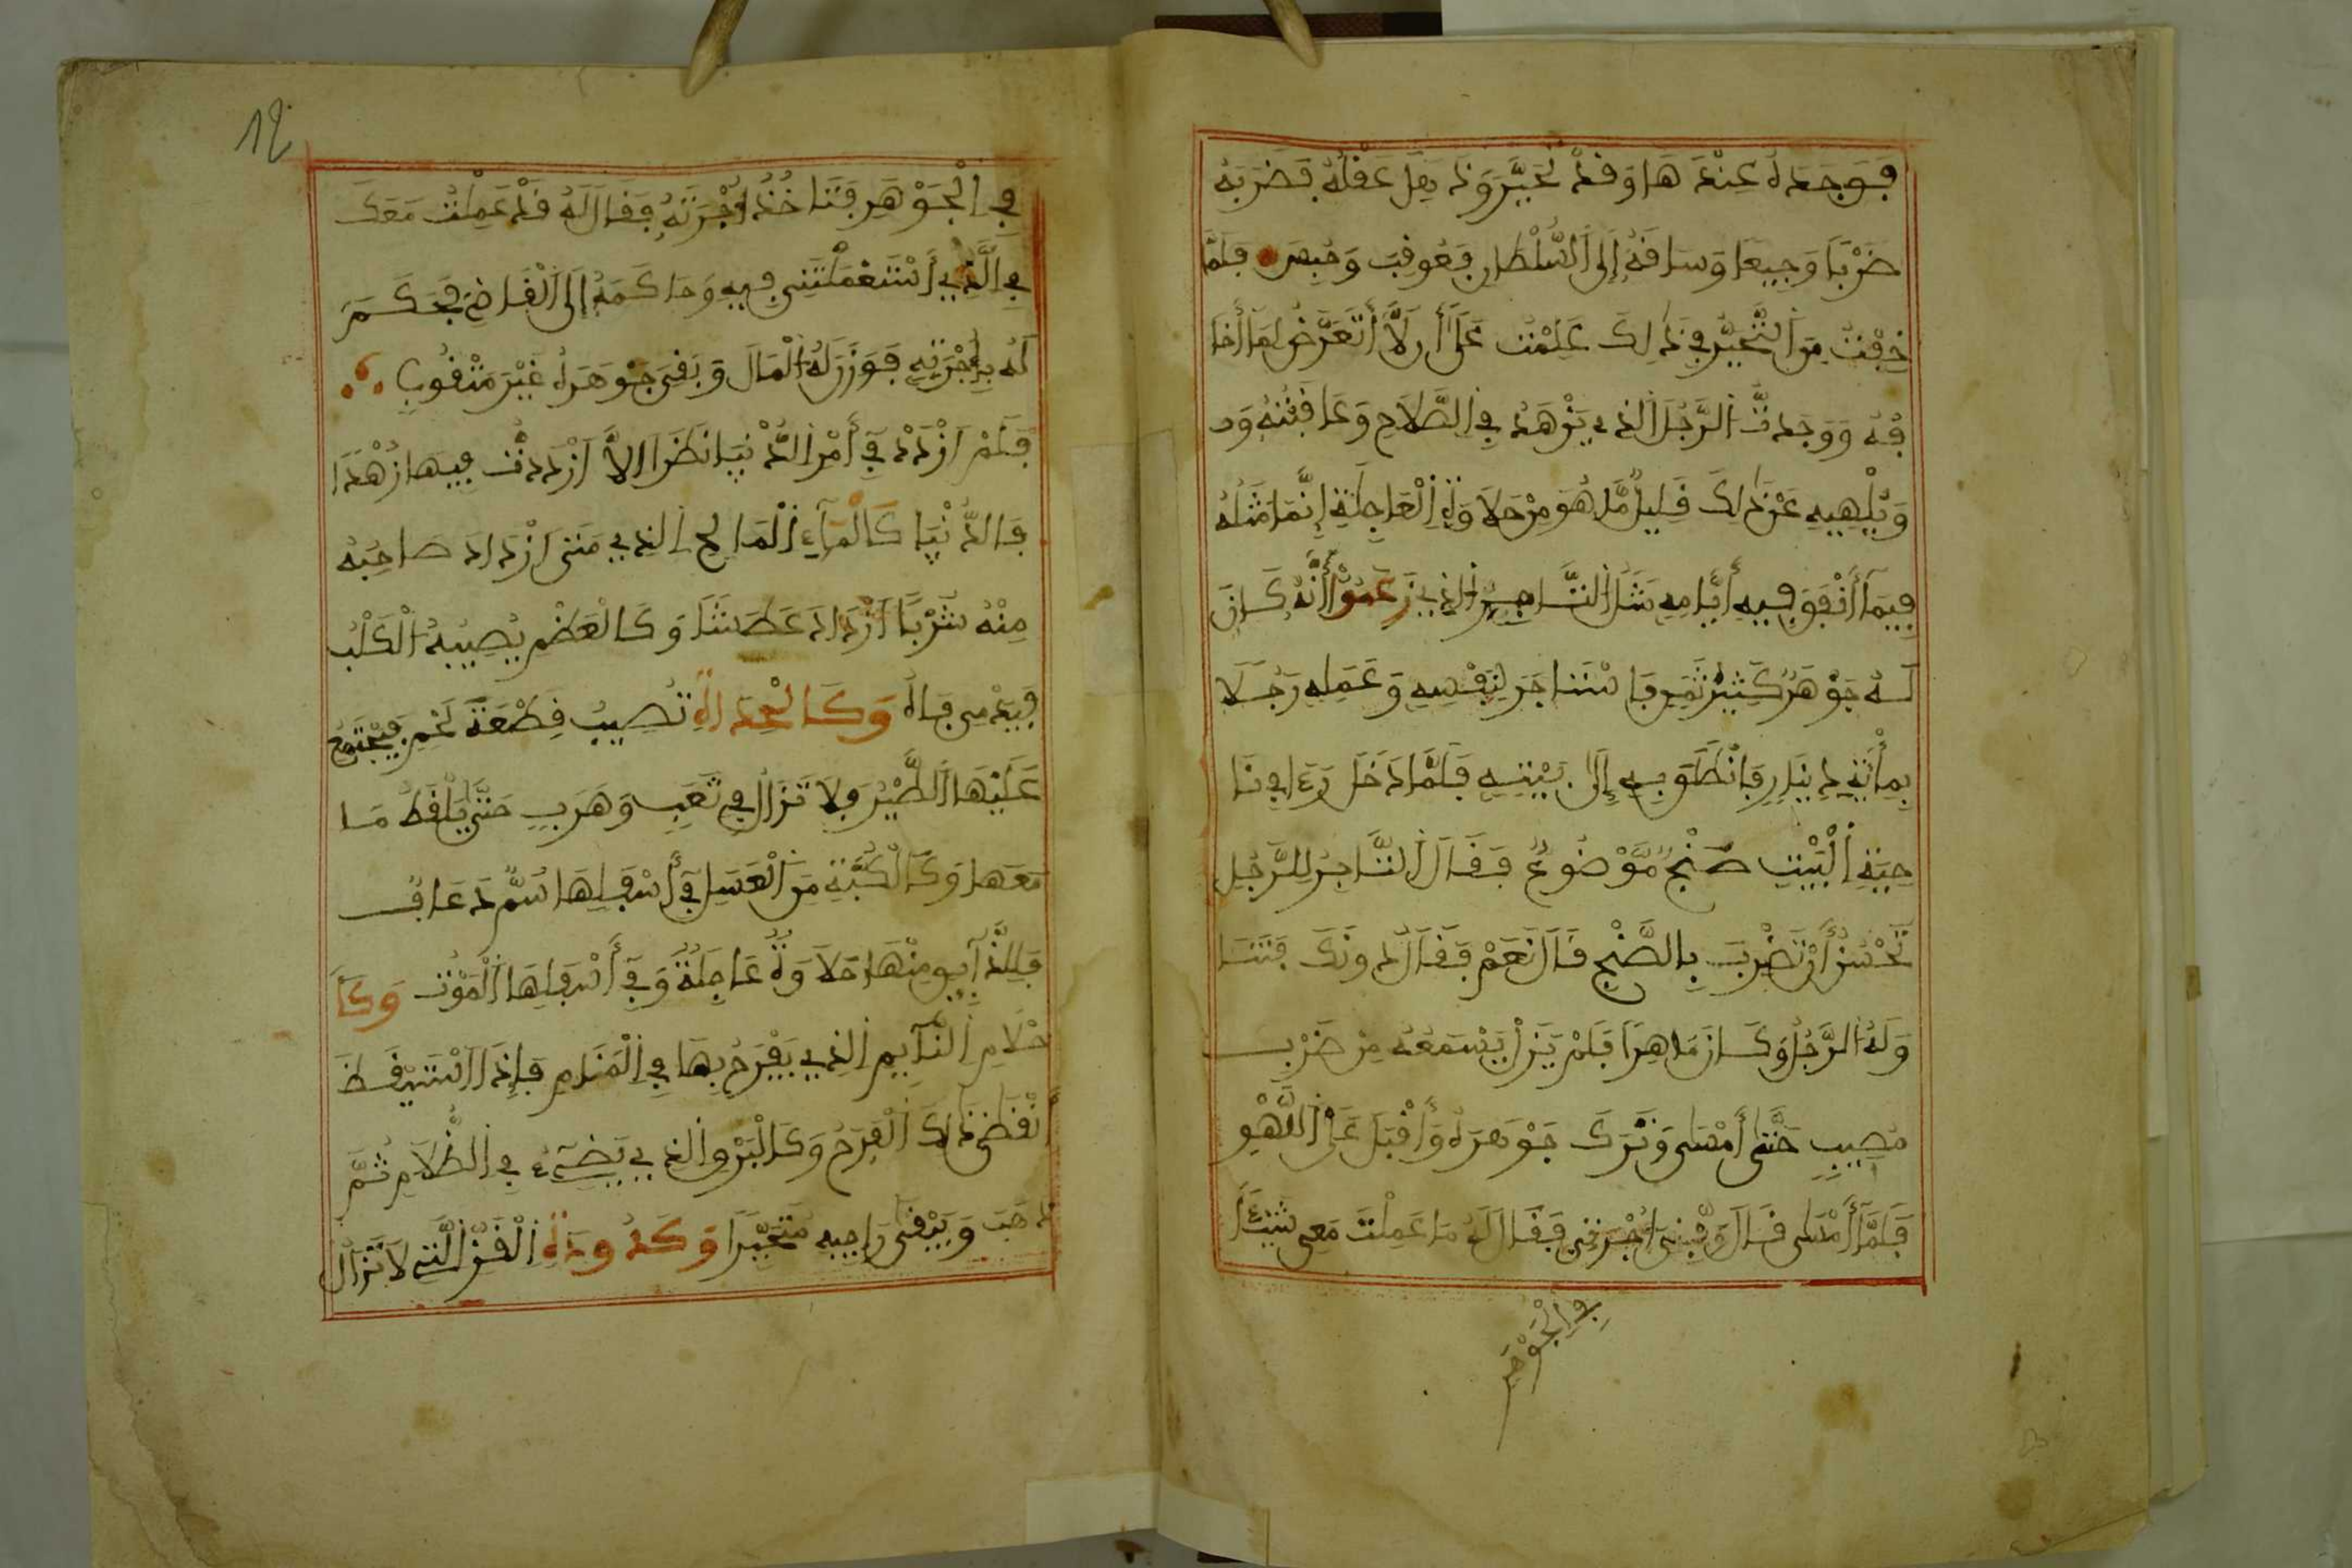 فَوَجَدَهُ عِنْدَهَا وَقَدْ تَحَيَّرَ وَذَهِلَ عَقْلُهُ فَضَرَبَهُ
ضَرْبًا وَجِيعًا وَسَاقَهُ إِلَى السُّلْطَانِ فَعُوقِبَ وَحُبِسَ فَلَمَّا
خِفْتُ مِنَ التَّحَيُّرِ فِي ذَلِكَ عَلِمْتُ عَلَى أَن لَّا أَتَعَرَّضُ لِمَا أَخَا
فُهُ وَوَجَدتُّ الرَّجُلَ الذِي يَزْهَدُ فِي الصَّلَاحِ وَعَاقِبَتُهُ وَد
وَيُلْهِيهِ عَنْ ذَلِكَ قَلِيلٌ مَّا هُوَ مِنْ حَلَاوَةِ الْعَاجِلَةِ إِنَّمَا مَثَلُهُ
فِيمَا أَنْفَقَ فِيهِ أَيَّامِهِ مَثَلُ التَّاجِرِ الذِي زَعَمُوا أَنَّهُ كَانَ
لَهُ جَوْهَرٌ كَثِيرُ ثَمَنٍ فَاسْتَاجَرَ لِنَفْسِهِ وَعَمَلِهِ رَجُلَا
بِمِائَةِ دِينَارٍ فَانْطَلَقَ بِهِ إِلَى بَيْتِهِ فَلَمَّا دَخَلَ رَءَا فِي نَا
حِيَةِ الْبَيْتِ صَنْجٌ مَّوْضُوعٌ فَقَالَ التَّاجِرُ لِلرَّجُلِ
تَحْسُنُ أَنْ تَضْرِبَ بِالصَّنْجِ قَالَ نَعَمْ فَقَالَ دُونَكَ فَتَنَا
وَلَهُ الرَّجُلُ وَكَانَ مَاهِرًا فَلَمْ يَزَلْ يَسْمَعُهُ مِنْ ضَرْبٍ
مُصِيبٍ حَتَّى أَمْسَى وَتَرَكَ جَوْهَرَهُ وَأَقْبَلَ عَلَى اللَّهْوِ
فَلَمَّا أَمْسَى قَالَ وَفِّنِي أُجْرَتِي فَقَالَ لَهُ مَا عَمِلْتَ مَعِي شَيْئًا
فِي الْجَوْهَرِ
12
فِي الْجَوْهَرِ فَتَاخُذُ أُجْرَتَهُ فَقَالَ لَهُ قَدْ عَمِلْتُ مَعَكَ
فِي الَّذِي أَسْتَعْمَلْتَنِي فِيهِ وَحَاكَمَهُ إِلَى الْقَاضِي فَحَكَمَ
لَهُ بِأُجْرَتِهِ فَوَزَنَ لَهُ الْمَالَ وَبَقِيَ جَوْهَرَهُ غَيْرَ مَثْقُوبٍ
فَلَمْ أَزْدَدْ فِي أَمْرِ الدُّنْيَا نَظَرًا إِلاَّ أَزْدَدتُّ فِيهَا زُهْدَا
فَالدُّنْيَا كَالْمَآءِ الْمَالِحِ الذِي مَتَى ازْدَادَ صَاحِبُهُ
مِنْهُ شَرْبًا أَزْدَادَ عَطَشًا وَكَالْعَظْمِ يُصِيبُهُ الْكَلْبُ
فَيُدْمِي فَاهُ وَكَالْحِدَاةِ تُصِيبُ قِطْعَةَ لَحْمٍ فَيَجْتَمِعُ
عَلَيْهَا الطَّيْرُ وَلَا تَزَالُ فِي تَعَبٍ وَهَرَبٍ حَتَّى يَلْفَظُ مَا
مَعَهَا وَكَالْكُبَّةِ مِنَ الْعَسَلِ فِي أَسْفَلِهَا سُمٌّ دُعَافٌ
فَلِلذَّآيِقِ مِنْهَا حَلَاوَةٌ عَاجِلَةٌ وَفِي أَسْفَلِهَا الْمَوْتُ وَكَأَ
حْلَامِ النَّآيِمِ الذِي يَفْرَحُ بِهَا فِي الْمَنَامِ فَإِذَا اسْتَيْقَظَ
انْقَضَى ذَلِكَ الْفَرَحُ وَكَالْبَرْقِ الذِي يَضِيءُ فِي الظَّلَامِ ثُمَّ
ذَهَبَ وَيَبْقَى رَاجِيهِ مُتَحَيِّرًا وَكَدُودَةِ الْقَزِّ الَّتِي لَا تَزَالُ